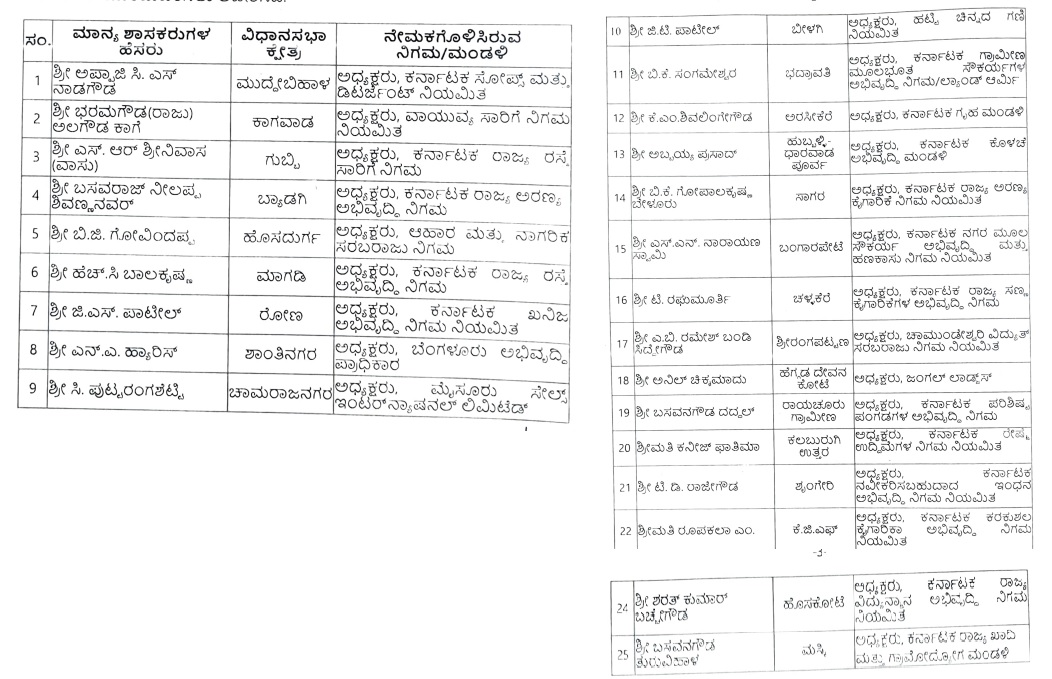 ಸಂ. ಮಾನ್ಯ ಶಾಸಕರುಗಳ ವಿಧಾನಸಭಾ ನೇಮಕಗೊಳಿಸಿರುವ
ಹೆಸರು ಕ್ಷೇತ್ರ ನಿಗಮ/ಮಂಡಳಿ
1 ಶ್ರೀ ಅಪ್ಪಾಜಿ ಸಿ. ಎಸ್ ಮುದ್ದೇಬಿಹಾಳ ಅಧ್ಯಕ್ಷರು, ಕರ್ನಾಟಕ ಸೋಪ್ಸ್ ಮತ್ತು
ನಾಡಗೌಡ ಡಿಟರ್ಜೆಂಟ್ ನಿಯಮಿತ
2 ಶ್ರೀ ಭರಮಗೌಡ(ರಾಜು) ಕಾಗವಾಡ ಅಧ್ಯಕ್ಷರು, ವಾಯುವ್ಯ ಸಾರಿಗೆ ನಿಗಮ
ಅಲಗೌಡ ಕಾಗೆ ನಿಯಮಿತ
3 ಶ್ರೀ ಎಸ್. ಆರ್ ಶ್ರೀನಿವಾಸ ಗುಬ್ಬಿ ಅಧ್ಯಕ್ಷರು, ಕರ್ನಾಟಕ ರಾಜ್ಯ ರಸ್ತೆ
(ವಾಸು) ಸಾರಿಗೆ ನಿಗಮ
4 ಶ್ರೀ ಬಸವರಾಜ್ ನೀಲಪ್ಪ ಬ್ಯಾಡಗಿ ಅಧ್ಯಕ್ಷರು, ಕರ್ನಾಟಕ ರಾಜ್ಯ ಅರಣ್ಯ
ಶಿವಣ್ಣನವರ್ ಅಭಿವೃದ್ಧಿ ನಿಗಮ
5 ಶ್ರೀ ಬಿ.ಜಿ. ಗೋವಿಂದಪ್ಪ ಹೊಸದುರ್ಗ ಅಧ್ಯಕ್ಷರು, ಆಹಾರ ಮತ್ತು ನಾಗರಿಕ
ಸರಬರಾಜು ನಿಗಮ
6 ಶ್ರೀ ಹೆಚ್.ಸಿ ಬಾಲಕೃಷ್ಣ ಮಾಗಡಿ ಅಧ್ಯಕ್ಷರು, ಕರ್ನಾಟಕ ರಾಜ್ಯ ರಸ್ತೆ
ಅಭಿವೃದ್ಧಿ ನಿಗಮ
7 ಶ್ರೀ ಜಿ.ಎಸ್. ಪಾಟೀಲ್ ರೋಣ ಅಧ್ಯಕ್ಷರು, ಕರ್ನಾಟಕ ಖನಿಜ
ಅಭಿವೃದ್ಧಿ ನಿಗಮ ನಿಯಮಿತ
8 ಶ್ರೀ ಎನ್.ಎ. ಹ್ಯಾರಿಸ್ ಶಾಂತಿನಗರ ಅಧ್ಯಕ್ಷರು, ಬೆಂಗಳೂರು ಅಭಿವೃದ್ಧಿ
ಪ್ರಾಧಿಕಾರ
9 ಶ್ರೀ ಸಿ. ಪುಟ್ಟರಂಗಶೆಟ್ಟಿ ಚಾಮರಾಜನಗರ ಅಧ್ಯಕ್ಷರು, ಮೈಸೂರು ಸೇಲ್ಸ್
ಇಂಟರ್‌ನ್ಯಾಷನಲ್ ಲಿಮಿಟೆಡ್
10 ಶ್ರೀ ಜಿ.ಟಿ. ಪಾಟೀಲ್ ಬೀಳಗಿ ಅಧ್ಯಕ್ಷರು, ಹಟ್ಟಿ ಚಿನ್ನದ ಗಣಿ
ನಿಯಮಿತ
11 ಶ್ರೀ ಬಿ.ಕೆ. ಸಂಗಮೇಶ್ವರ ಭದ್ರಾವತಿ ಅಧ್ಯಕ್ಷರು, ಕರ್ನಾಟಕ ಗ್ರಾಮೀಣ
ಮೂಲಭೂತ ಸೌಕರ್ಯಗಳ
ಅಭಿವೃದ್ಧಿ ನಿಗಮ/ಲ್ಯಾಂಡ್ ಆರ್ಮಿ
12 ಶ್ರೀ ಕೆ.ಎಂ.ಶಿವಲಿಂಗೇಗೌಡ ಅರಸೀಕೆರೆ ಅಧ್ಯಕ್ಷರು, ಕರ್ನಾಟಕ ಗೃಹ ಮಂಡಳಿ
13 ಶ್ರೀ ಅಬ್ಬಯ್ಯ ಪ್ರಸಾದ್ ಹುಬ್ಬಳ್ಳಿ- ಅಧ್ಯಕ್ಷರು, ಕರ್ನಾಟಕ ಕೊಳಚೆ
ಧಾರವಾಡ ಅಭಿವೃದ್ಧಿ ಮಂಡಳಿ
ಪೂರ್ವ
14 ಶ್ರೀ ಬಿ.ಕೆ. ಗೋಪಾಲಕೃಷ್ಣ ಸಾಗರ ಅಧ್ಯಕ್ಷರು, ಕರ್ನಾಟಕ ರಾಜ್ಯ ಅರಣ್ಯ
ಬೇಳೂರು ಕೈಗಾರಿಕೆ ನಿಗಮ ನಿಯಮಿತ
15 ಶ್ರೀ ಎಸ್.ಎನ್. ನಾರಾಯಣ ಬಂಗಾರಪೇಟೆ ಅಧ್ಯಕ್ಷರು, ಕರ್ನಾಟಕ ನಗರ ಮೂಲ
ಸ್ವಾಮಿ ಸೌಕರ್ಯ ಅಭಿವೃದ್ಧಿ ಮತ್ತು
ಹಣಕಾಸು ನಿಗಮ ನಿಯಮಿತ
16 ಶ್ರೀ ಟಿ. ರಘುಮೂರ್ತಿ ಚಳ್ಳಕೆರೆ ಅಧ್ಯಕ್ಷರು, ಕರ್ನಾಟಕ ರಾಜ್ಯ ಸಣ್ಣ
ಕೈಗಾರಿಕೆಗಳ ಅಭಿವೃದ್ಧಿ ನಿಗಮ
17 ಶ್ರೀ ಎ.ಬಿ. ರಮೇಶ್ ಬಂಡಿ ಶ್ರೀರಂಗಪಟ್ಟಣ ಅಧ್ಯಕ್ಷರು, ಚಾಮುಂಡೇಶ್ವರಿ ವಿದ್ಯುತ್
ಸಿದ್ದೇಗೌಡ ಸರಬರಾಜು ನಿಗಮ ನಿಯಮಿತ
18 ಶ್ರೀ ಅನಿಲ್ ಚಿಕ್ಕಮಾದು ಹೆಗ್ಗಡ ದೇವನ ಅಧ್ಯಕ್ಷರು, ಜಂಗಲ್ ಲಾಡ್ಜಸ್
ಕೋಟೆ
19 ಶ್ರೀ ಬಸವನಗೌಡ ದದ್ದಲ್ ರಾಯಚೂರು ಅಧ್ಯಕ್ಷರು, ಕರ್ನಾಟಕ ಪರಿಶಿಷ್ಟ
ಗ್ರಾಮೀಣ ಪಂಗಡಗಳ ಅಭಿವೃದ್ಧಿ ನಿಗಮ
20 ಶ್ರೀಮತಿ ಕನೀಜ್ ಫಾತಿಮಾ ಕಲಬುರುಗಿ ಅಧ್ಯಕ್ಷರು, ಕರ್ನಾಟಕ ರೇಷ್ಮೆ
ಉತ್ತರ ಉದ್ದಿಮೆಗಳ ನಿಗಮ ನಿಯಮಿತ
21 ಶ್ರೀ ಟಿ. ಡಿ. ರಾಜೇಗೌಡ ಶೃಂಗೇರಿ ಅಧ್ಯಕ್ಷರು, ಕರ್ನಾಟಕ
ನವೀಕರಿಸಬಹುದಾದ ಇಂಧನ
ಅಭಿವೃದ್ಧಿ ನಿಗಮ ನಿಯಮಿತ
22 ಶ್ರೀಮತಿ ರೂಪಕಲಾ ಎಂ. ಕೆ.ಜಿ.ಎಫ್ ಅಧ್ಯಕ್ಷರು, ಕರ್ನಾಟಕ ಕರಕುಶಲ
ಕೈಗಾರಿಕಾ ಅಭಿವೃದ್ಧಿ ನಿಗಮ
ನಿಯಮಿತ
24 ಶ್ರೀ ಶರತ್ ಕುಮಾರ್ ಹೊಸಕೋಟೆ ಅಧ್ಯಕ್ಷರು, ಕರ್ನಾಟಕ ರಾಜ್ಯ
ಬಚ್ಚೇಗೌಡ ವಿದ್ಯುನ್ಮಾನ ಅಭಿವೃದ್ಧಿ ನಿಗಮ
ನಿಯಮಿತ
25 ಶ್ರೀ ಬಸವನಗೌಡ ಮಸ್ಕಿ ಅಧ್ಯಕ್ಷರು, ಕರ್ನಾಟಕ ರಾಜ್ಯ ಖಾದಿ
ತುರುವಿಹಾಳ ಮತ್ತು ಗ್ರಾಮೋದ್ಯೋಗ ಮಂಡಳಿ